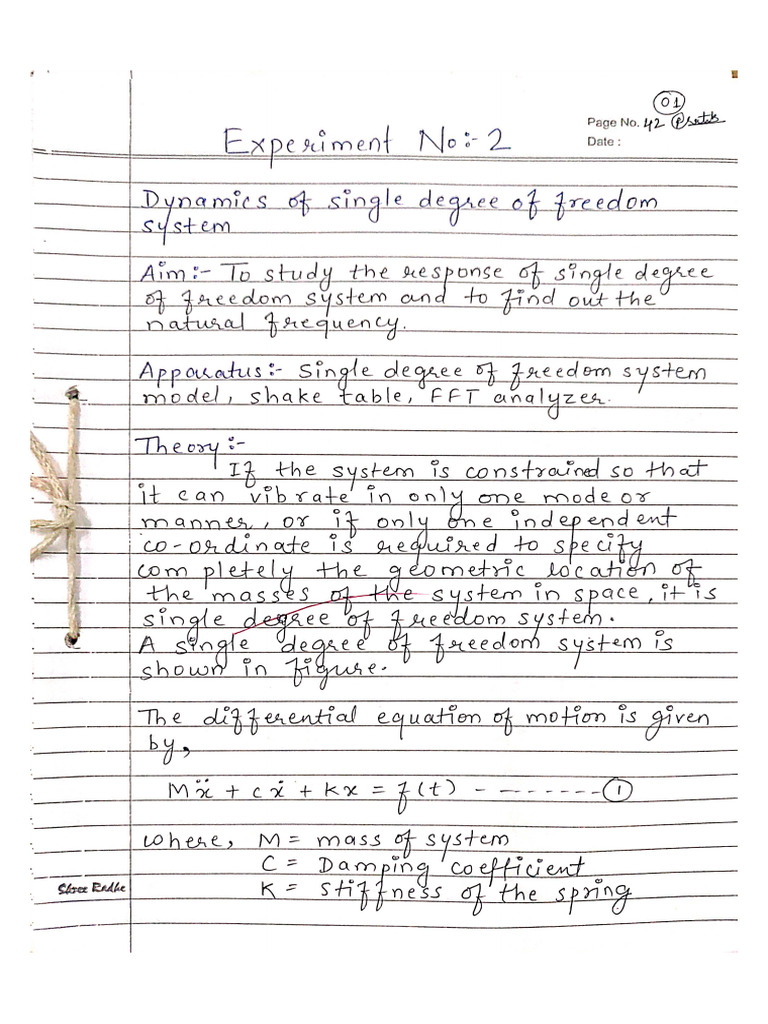 01
Page No. 42 Pratik
Date :
Experiment No:- 2
Dynamics of single degree of freedom
system
Aim:- To study the response of single degree
of freedom system and to find out the
natural frequency.
Apparatus:- Single degree of freedom system
model, shake table, FFT analyzer.
Theory:-
If the system is constrained so that
it can vibrate in only one mode or
manner, or if only one independent
co-ordinate is required to specify
completely the geometric location of
the masses of the system in space, it is
single degree of freedom system.
A single degree of freedom system is
shown in figure.
The differential equation of motion is given
by,
Mẍ + cẋ + Kx = f(t) - - - - - - - - ①
where, M = mass of system
C = Damping coefficient
K = Stiffness of the spring
Shree Radhe